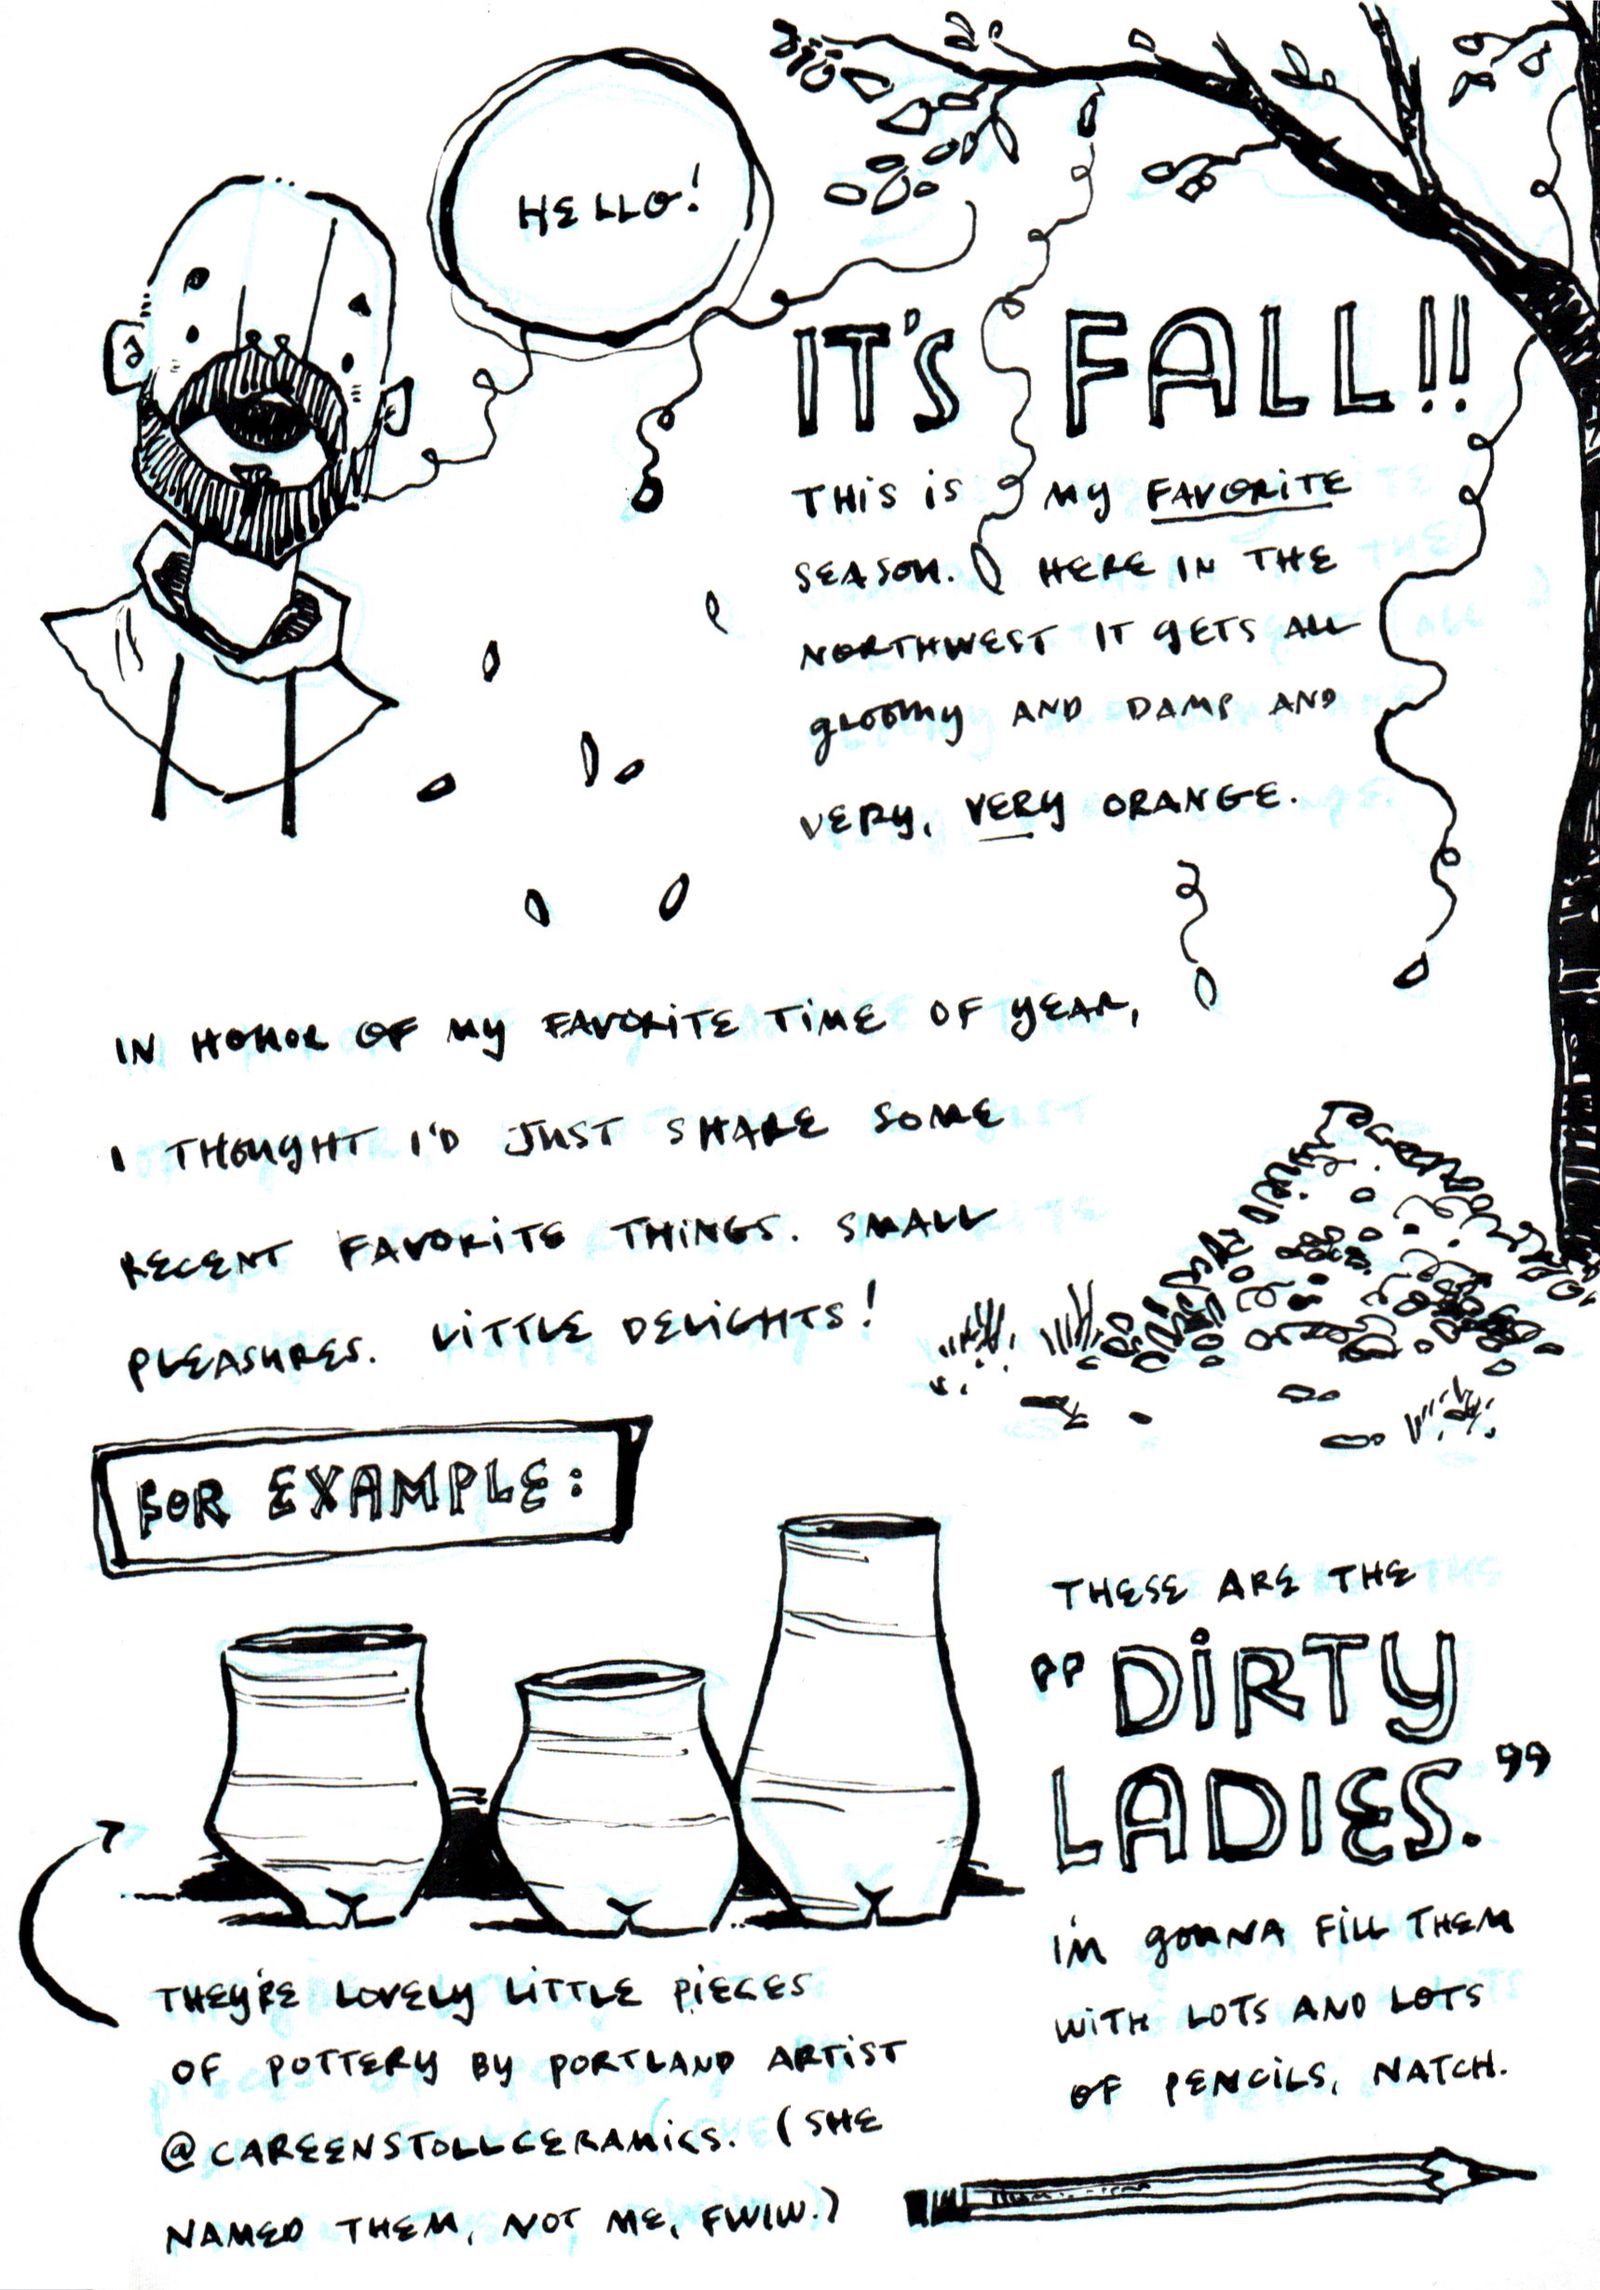 HELLO!
IT'S FALL!!
THIS IS MY FAVORITE
SEASON. HERE IN THE
NORTHWEST IT GETS ALL
GLOOMY AND DAMP AND
VERY, VERY ORANGE.
IN HONOR OF MY FAVORITE TIME OF YEAR,
I THOUGHT I'D JUST SHARE SOME
RECENT FAVORITE THINGS. SMALL
PLEASURES. LITTLE DELIGHTS!
FOR EXAMPLE:
THESE ARE THE
"DIRTY
LADIES."
I'M GONNA FILL THEM
WITH LOTS AND LOTS
OF PENCILS, NATCH.
THEY'RE LOVELY LITTLE PIECES
OF POTTERY BY PORTLAND ARTIST
@CAREENSTOLLCERAMICS. (SHE
NAMED THEM, NOT ME, FWIW.)